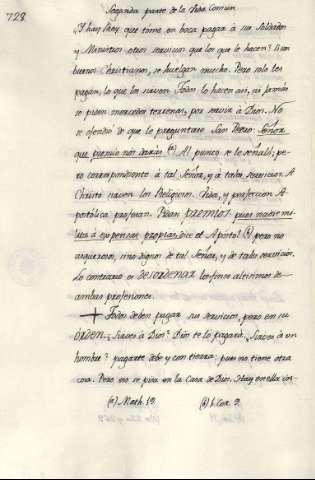 728
Segunda parte de la Vida Comun
Y hay Rey, que tome en boca pagar à sus Soldados
y Ministros otros servicios que los que le hacen? Si son
buenos Christianos, se huelgan mucho. Pero solo les
pagan, lo que les sirven. Todos lo hacen asi, ni jamàs
se piden mercedes terrenas, por servir à Dios. No
se ofendiò de que le preguntare San Pedro: Señor,
que premio nos daràs (*) Al punto se le señalò; pe-
ro correspondiente à tal Señor, y à tales servicios. A
Christo sirven los Religiosos. Vida, y profession A-
postolica profesan. Pidan premios pues nadie mi-
lita à expensas propias dice el Apostol (a) pero no
asquerosos, sino dignos de tal Señor, y de tales servicios.
Lo contrario es desordenar los fines altisimos de
ambas profesiones.
+ Todos deben pagar sus servicios, pero en su
orden. Sirves à Dios? Dios te lo pagarà. Sirves à un
hombre? pagarte debe y con tierra: pues no tiene otra
cosa. Pero no se pisa en la Casa de Dios. Hay en ella
(*) Math. 19. (a) 1. Cor. 9.